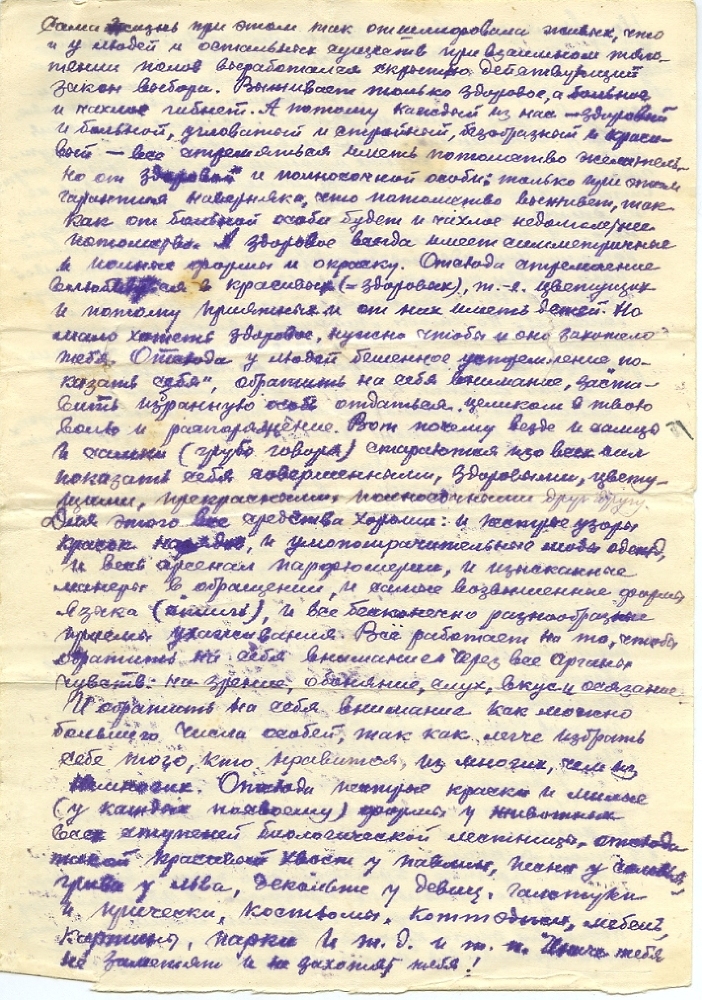 Сама жизнь при этом так отшлифовала живых, что
и у людей и остальных существ при взаимном тяго-
тении полов выработался скрытно действующий
закон выбора. Выживает только здоровое, а больное
и чахлое гибнет. А потому каждый из нас — здоровый
и больной, угловатый и стройный, безобразный и краси-
вый — все стремяться иметь потомство желатель-
но от здоровой и полносочной особи; только при этом
гарантия наверняка, что потомство выживет, так
как от больной особи будет и чахлое недолговечное
потомство. А здоровое всегда имеет симметричные
и полные формы и окраску. Отсюда стремление
в красивых (= здоровых), т.-е. цветущих
и потому приятных и от них иметь детей. Но
мало хотеть здоровое, нужно чтобы и оно захотело
тебя. Отсюда у людей бешенное устремление по-
казать себя", обратить на себя внимание, заста-
вить избранную особь отдаться целиком в твою
волю и распоряжение. Вот почему везде и самцы
и самки (грубо говоря) стараются изо всех сил
показать себя совершенными, здоровыми, цвету-
щими, прекрасными, полносочными друг другу.
Для этого все средства хороши: и пестрые узоры
красок, и умопомрачительные моды одежд,
и весь арсенал парфюмерии, и изысканные
манеры в обращении, и самые возвышенные формы
языка (стиль), и все бесконечно разнообразные
приемы ухаживания. Все работает на то, чтобы
обратить на себя внимание через все органы
чувств: на зрение, обоняние, слух, вкус и осязание.
И обратить на себя внимание как можно
большего числа особей, так как легче избрать
себе того, кто нравится, из многих, чем из
немногих. Отсюда пестрые краски и милые
(у каждых по своему) формы у животных
всех ступеней биологической лестницы, отсюда
такой красивый хвост у павлина, песня у
грива у льва, декольте у девиц, галстуки
и прически, костюмы, мебель,
картины, парки и т. д. и т. п. Иначе тебя
не заметят и не захотят тебя!